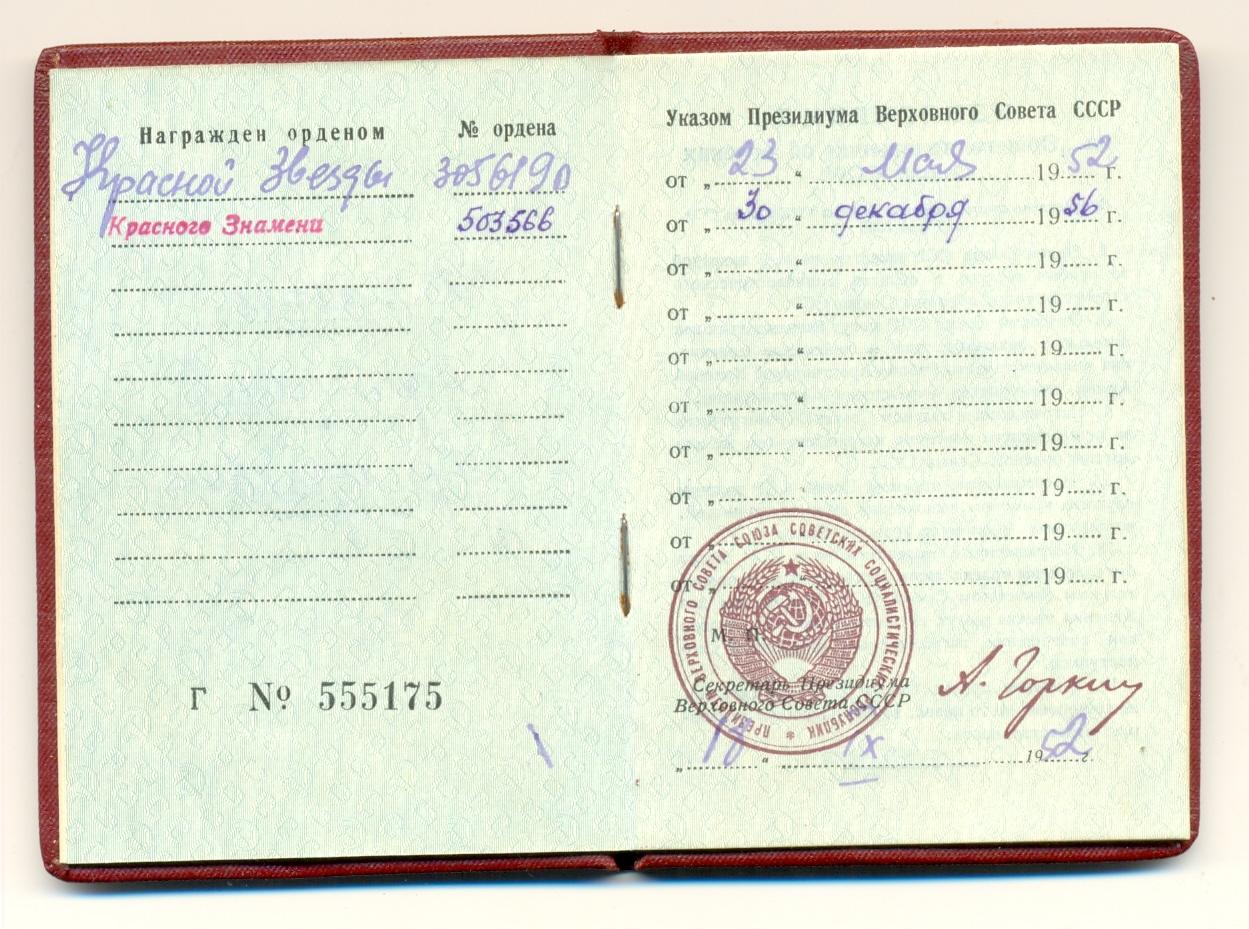 Награжден орденом
№ ордена
Красной Звезды 3056190
Красного Знамени 503566
Г № 555175
Указом Президиума Верховного Совета СССР
от „23“ Мая 1952 г.
от „30“ декабря 1956 г.
от „ “ 19 г.
от „ “ 19 г.
от „ “ 19 г.
от „ “ 19 г.
от „ “ 19 г.
от „ “ 19 г.
от „ “ 19 г.
от „ “ 19 г.
ПРЕЗИДИУМ ВЕРХОВНОГО СОВЕТА СОЮЗА СОВЕТСКИХ СОЦИАЛИСТИЧЕСКИХ РЕСПУБЛИК
М. П.
Секретарь Президиума
Верховного Совета СССР
А. Горкин
IX 1952 г.